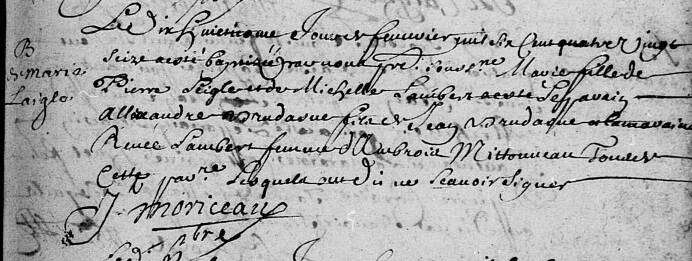 Le dix huictiesme Jour de feuvrier mil six Cent quatre vingt
B
de marie
Laiglo
seize a esté baptisée par nous pre soussne Marie fille de
Pierre Leigle et de Michelle Lambert a esté le parain
Allexandre Brudasne fils de Jean Brudasne et la maraine
Renée Lambert femme d'Ambroise Mittonneau Tous de
Cette parre Lesquels ont dit ne scavoir signer
J moriceau
pbre